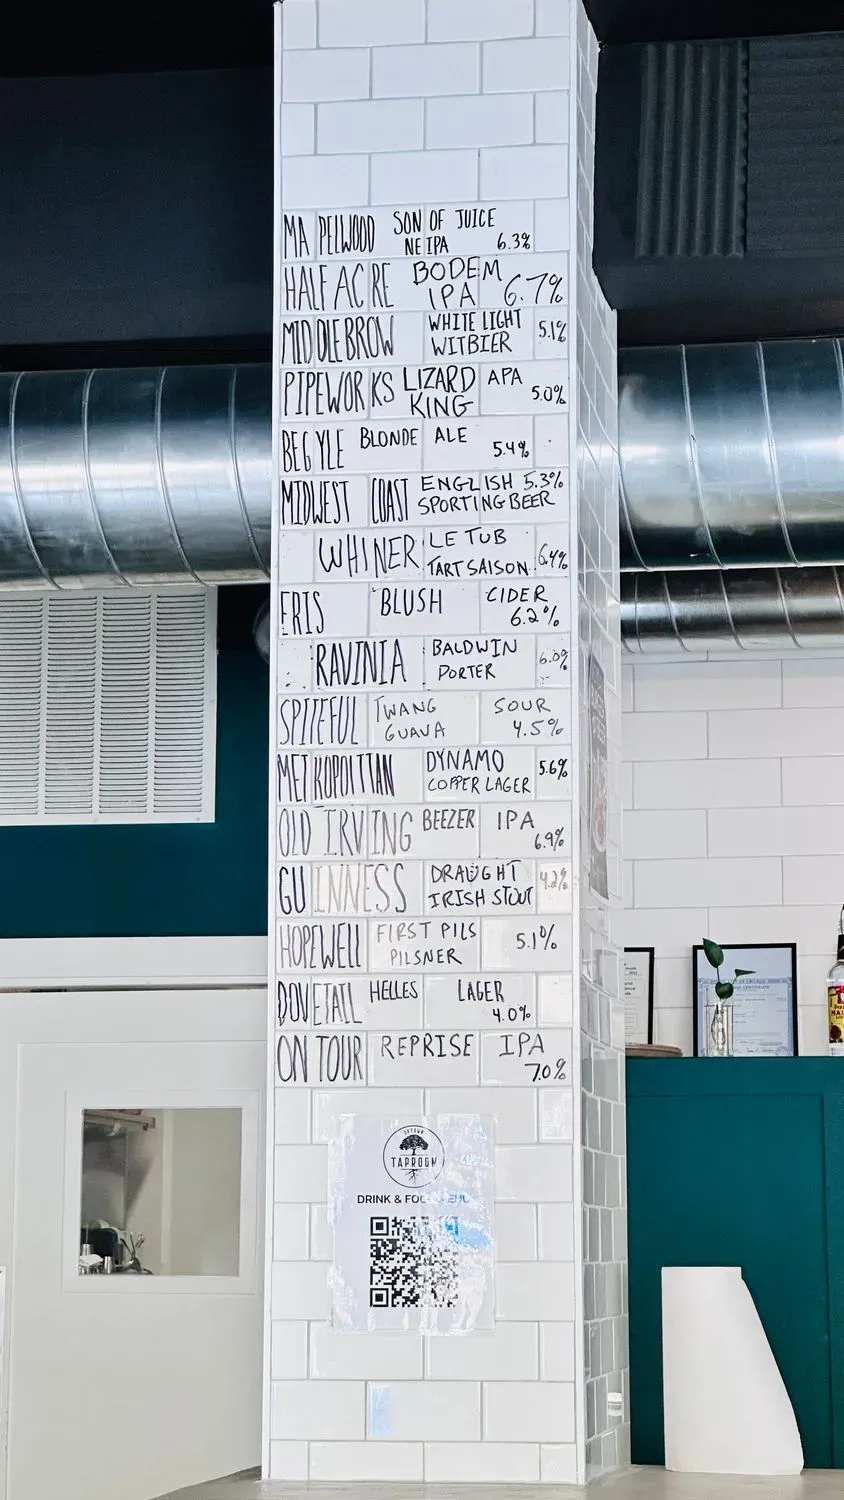 MAPELWOOD SON OF JUICE
NEIPA 6.3%
HALF ACRE BODEM
IPA 6.7%
MIDDLEBROW WHITE LIGHT
WITBIER 5.1%
PIPEWORKS LIZARD APA
KING 5.0%
BEGYLE BLONDE ALE
5.4%
MIDWEST COAST ENGLISH 5.3%
SPORTING BEER
WHINER LE TUB
TART SAISON 6.4%
ERIS BLUSH CIDER
6.2%
RAVINIA BALDWIN
PORTER 6.0%
SPITEFUL TWANG SOUR
GUAVA 4.5%
METROPOLITAN DYNAMO 5.6%
COPPER LAGER
OLD IRVING BEEZER IPA
6.9%
GUINNESS DRAUGHT 4.2%
IRISH STOUT
HOPEWELL FIRST PILS 5.1%
PILSNER
DOVETAIL HELLES LAGER
4.0%
ON TOUR REPRISE IPA
7.0%
UPTOWN
TAPROOM
DRINK & FOOD MENU